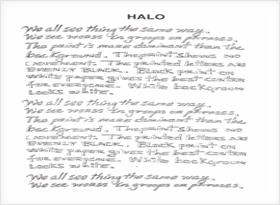 HALO
We all see thing the same way.
We see words in groups or phrases.
The print is more dominant than the
background. The print shows no
movement. The printed letters are
EVENLY BLACK. Black print on
white paper gives the best contra
for everyone. White background
looks white.
We all see thing the same way.
We see words in groups or phrases.
The print is more dominant than the
background. The print shows no
movement. The printed letters are
EVENLY BLACK. Black print on
white paper gives the best contra
for everyone. White background
looks white.
We all see thing the same way.
We see words in groups or phrases.